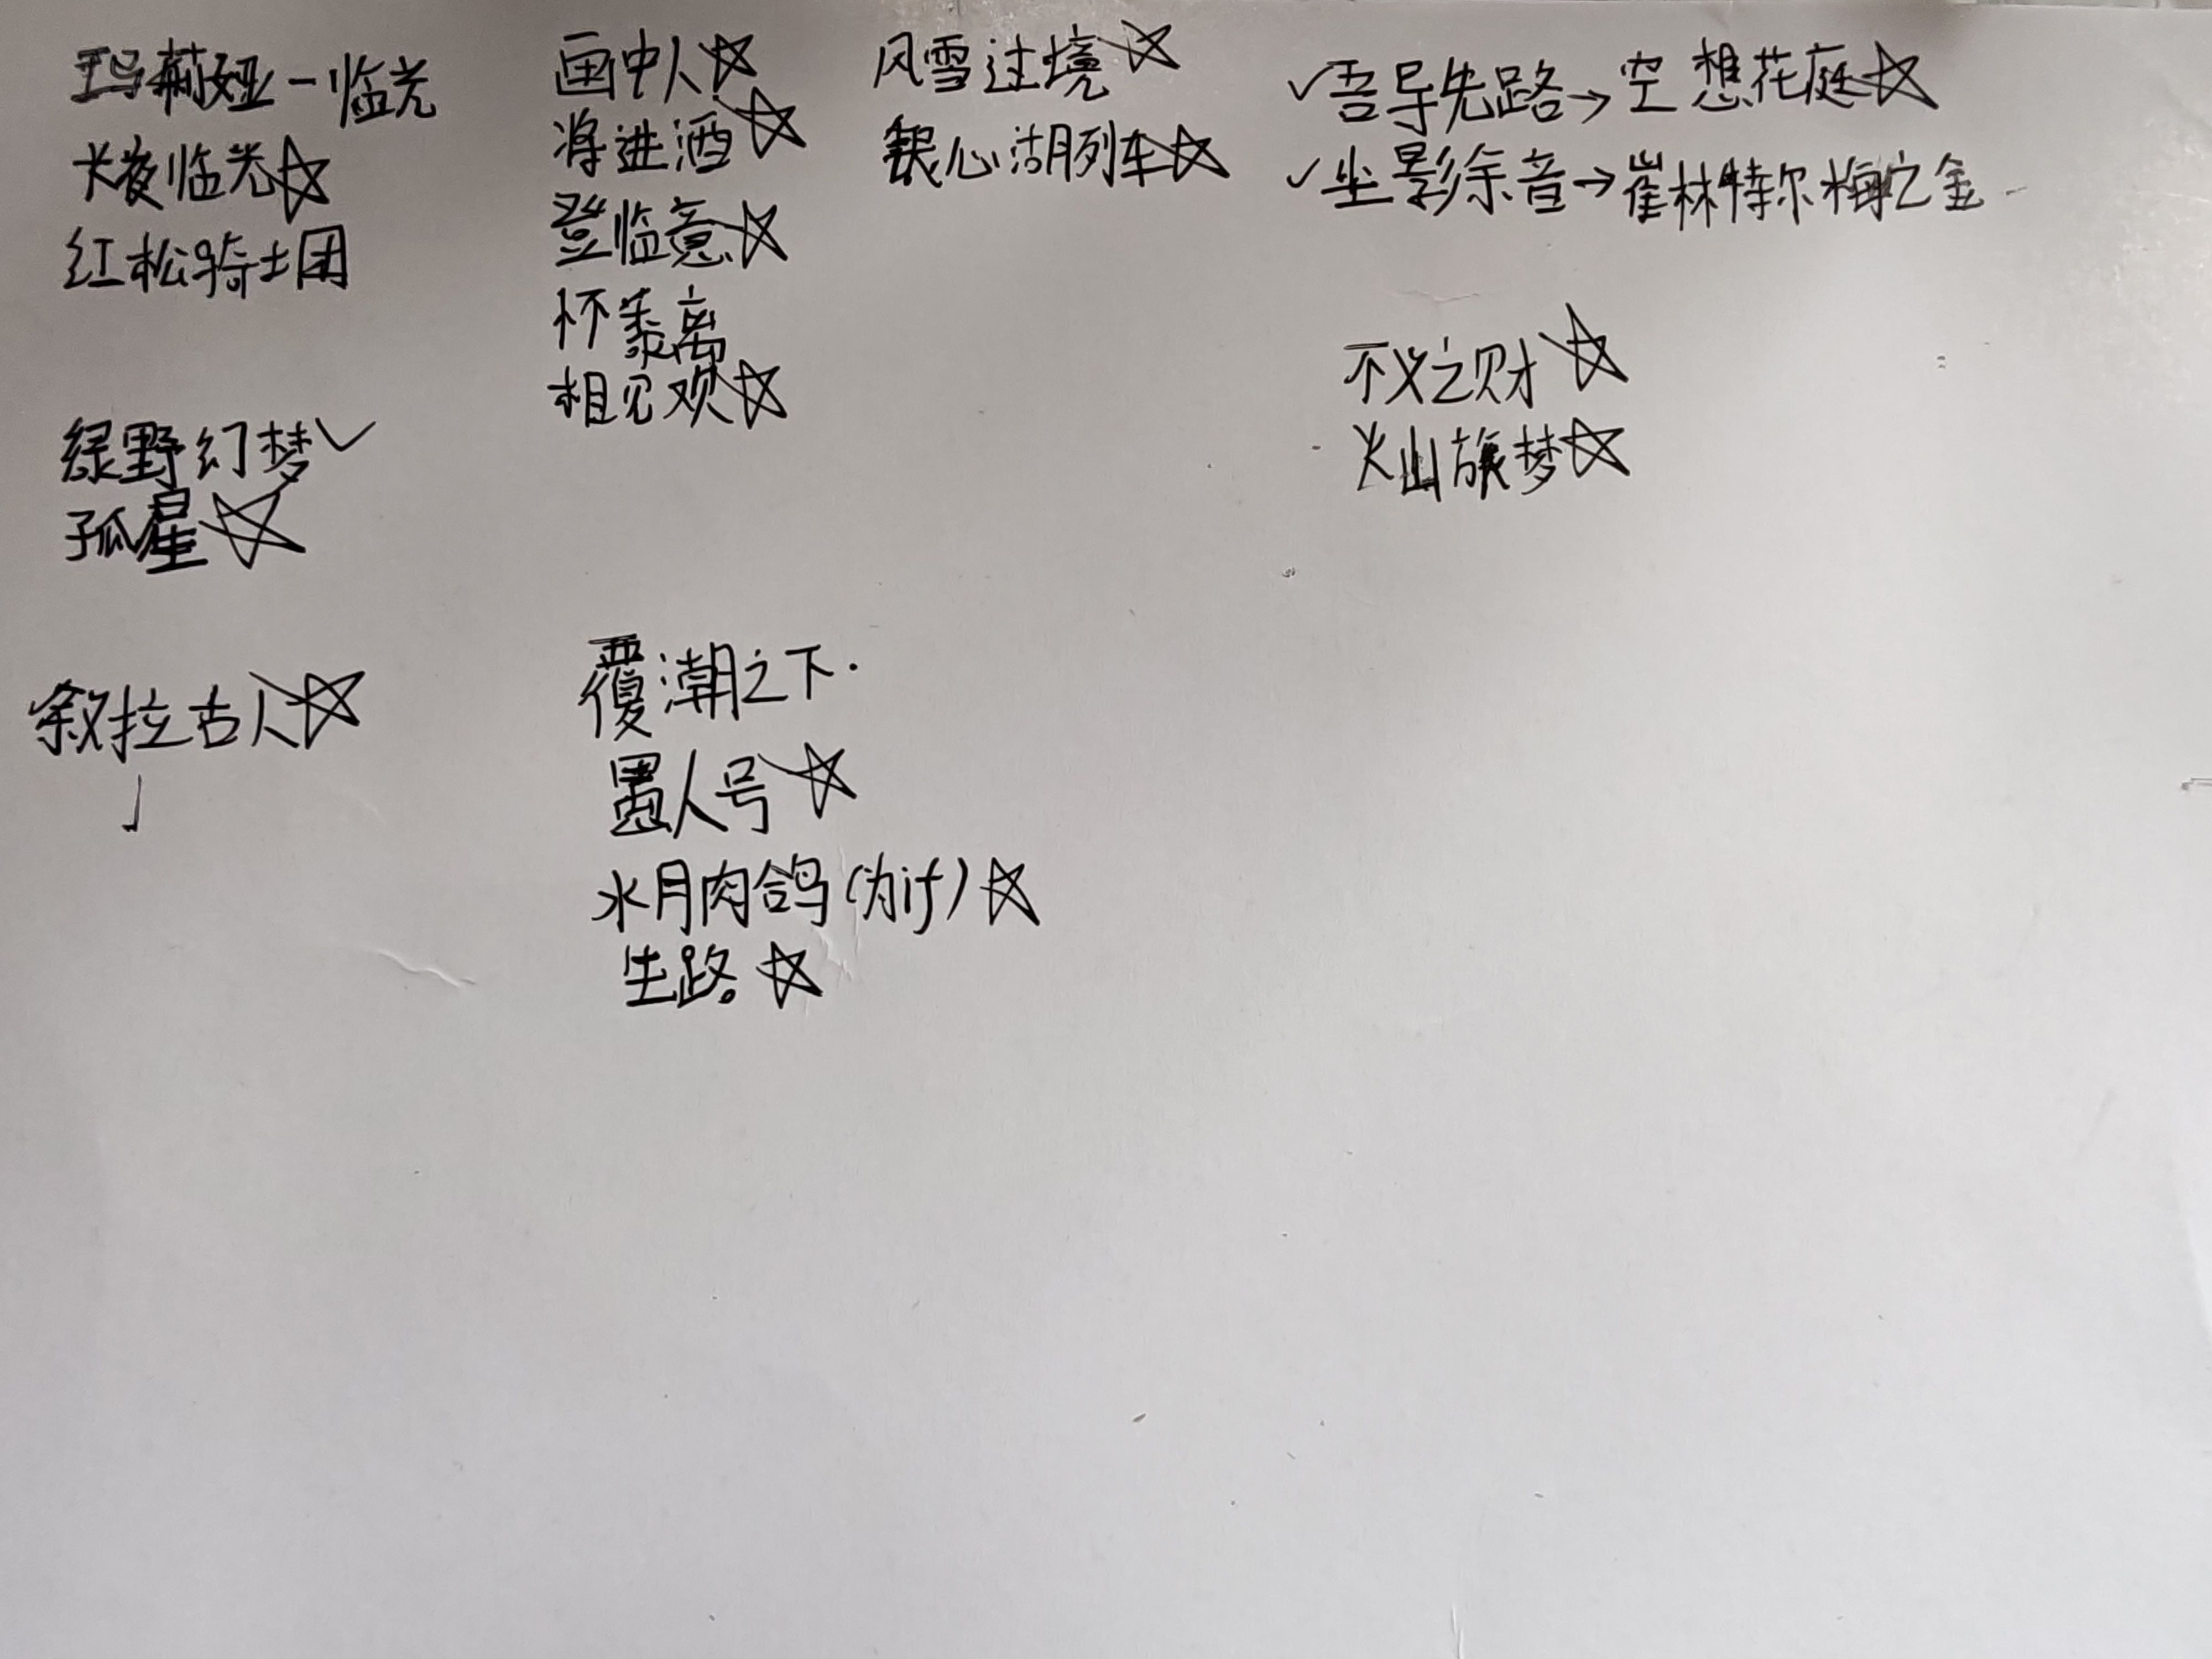 玛莉娅-临光
长夜临光☆
红松骑士团
绿野幻梦✓
孤星☆
叙拉古人☆
画中人☆
将进酒☆
登临意☆
怀黍离
相见欢☆
覆潮之下.
愚人号☆
水月肉鸽(为if)☆
生路。☆
风雪过境☆
银心湖列车☆
✓吾导先路→空想花庭☆
✓尘影余音→崔林特尔梅之金
不义之财☆
火山旅梦☆